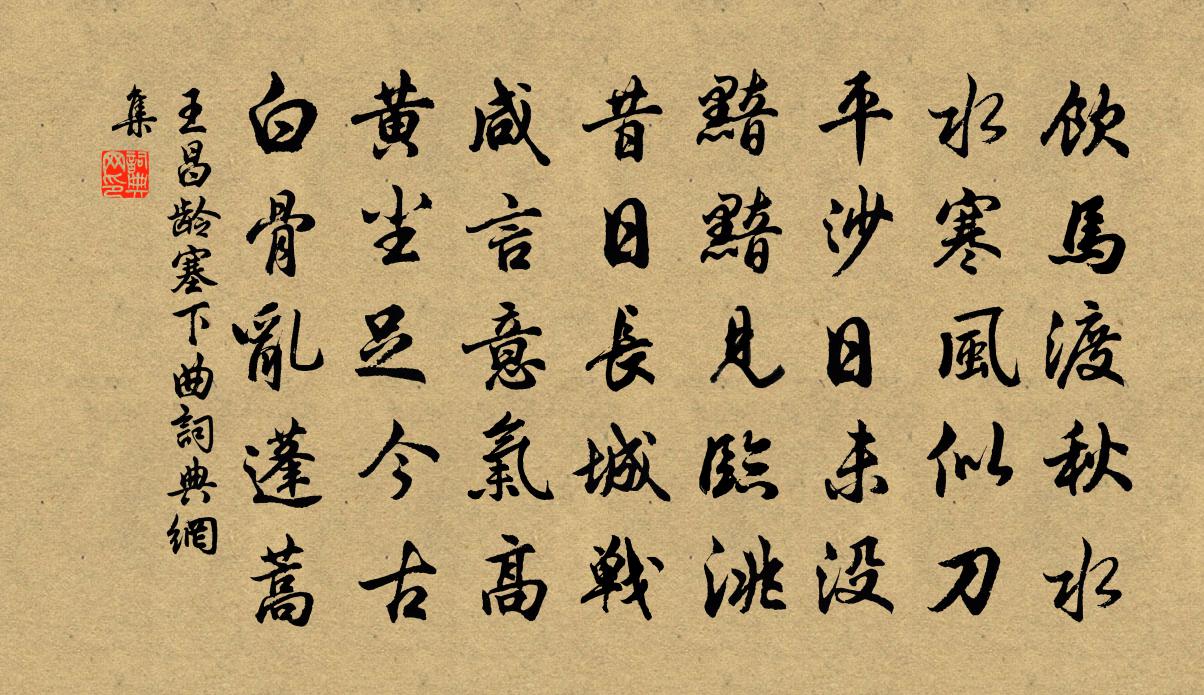 飲馬渡秋水
水寒風似刀
平沙日未没
黯黯見臨洮
昔日長城戦
咸言意氣高
黄塵足今古
白骨亂蓬蒿
王昌龄塞下曲詞典網
集
詞典
网印